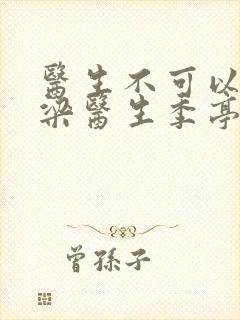 醫生不可以
梁醫生季亭
曾孫子